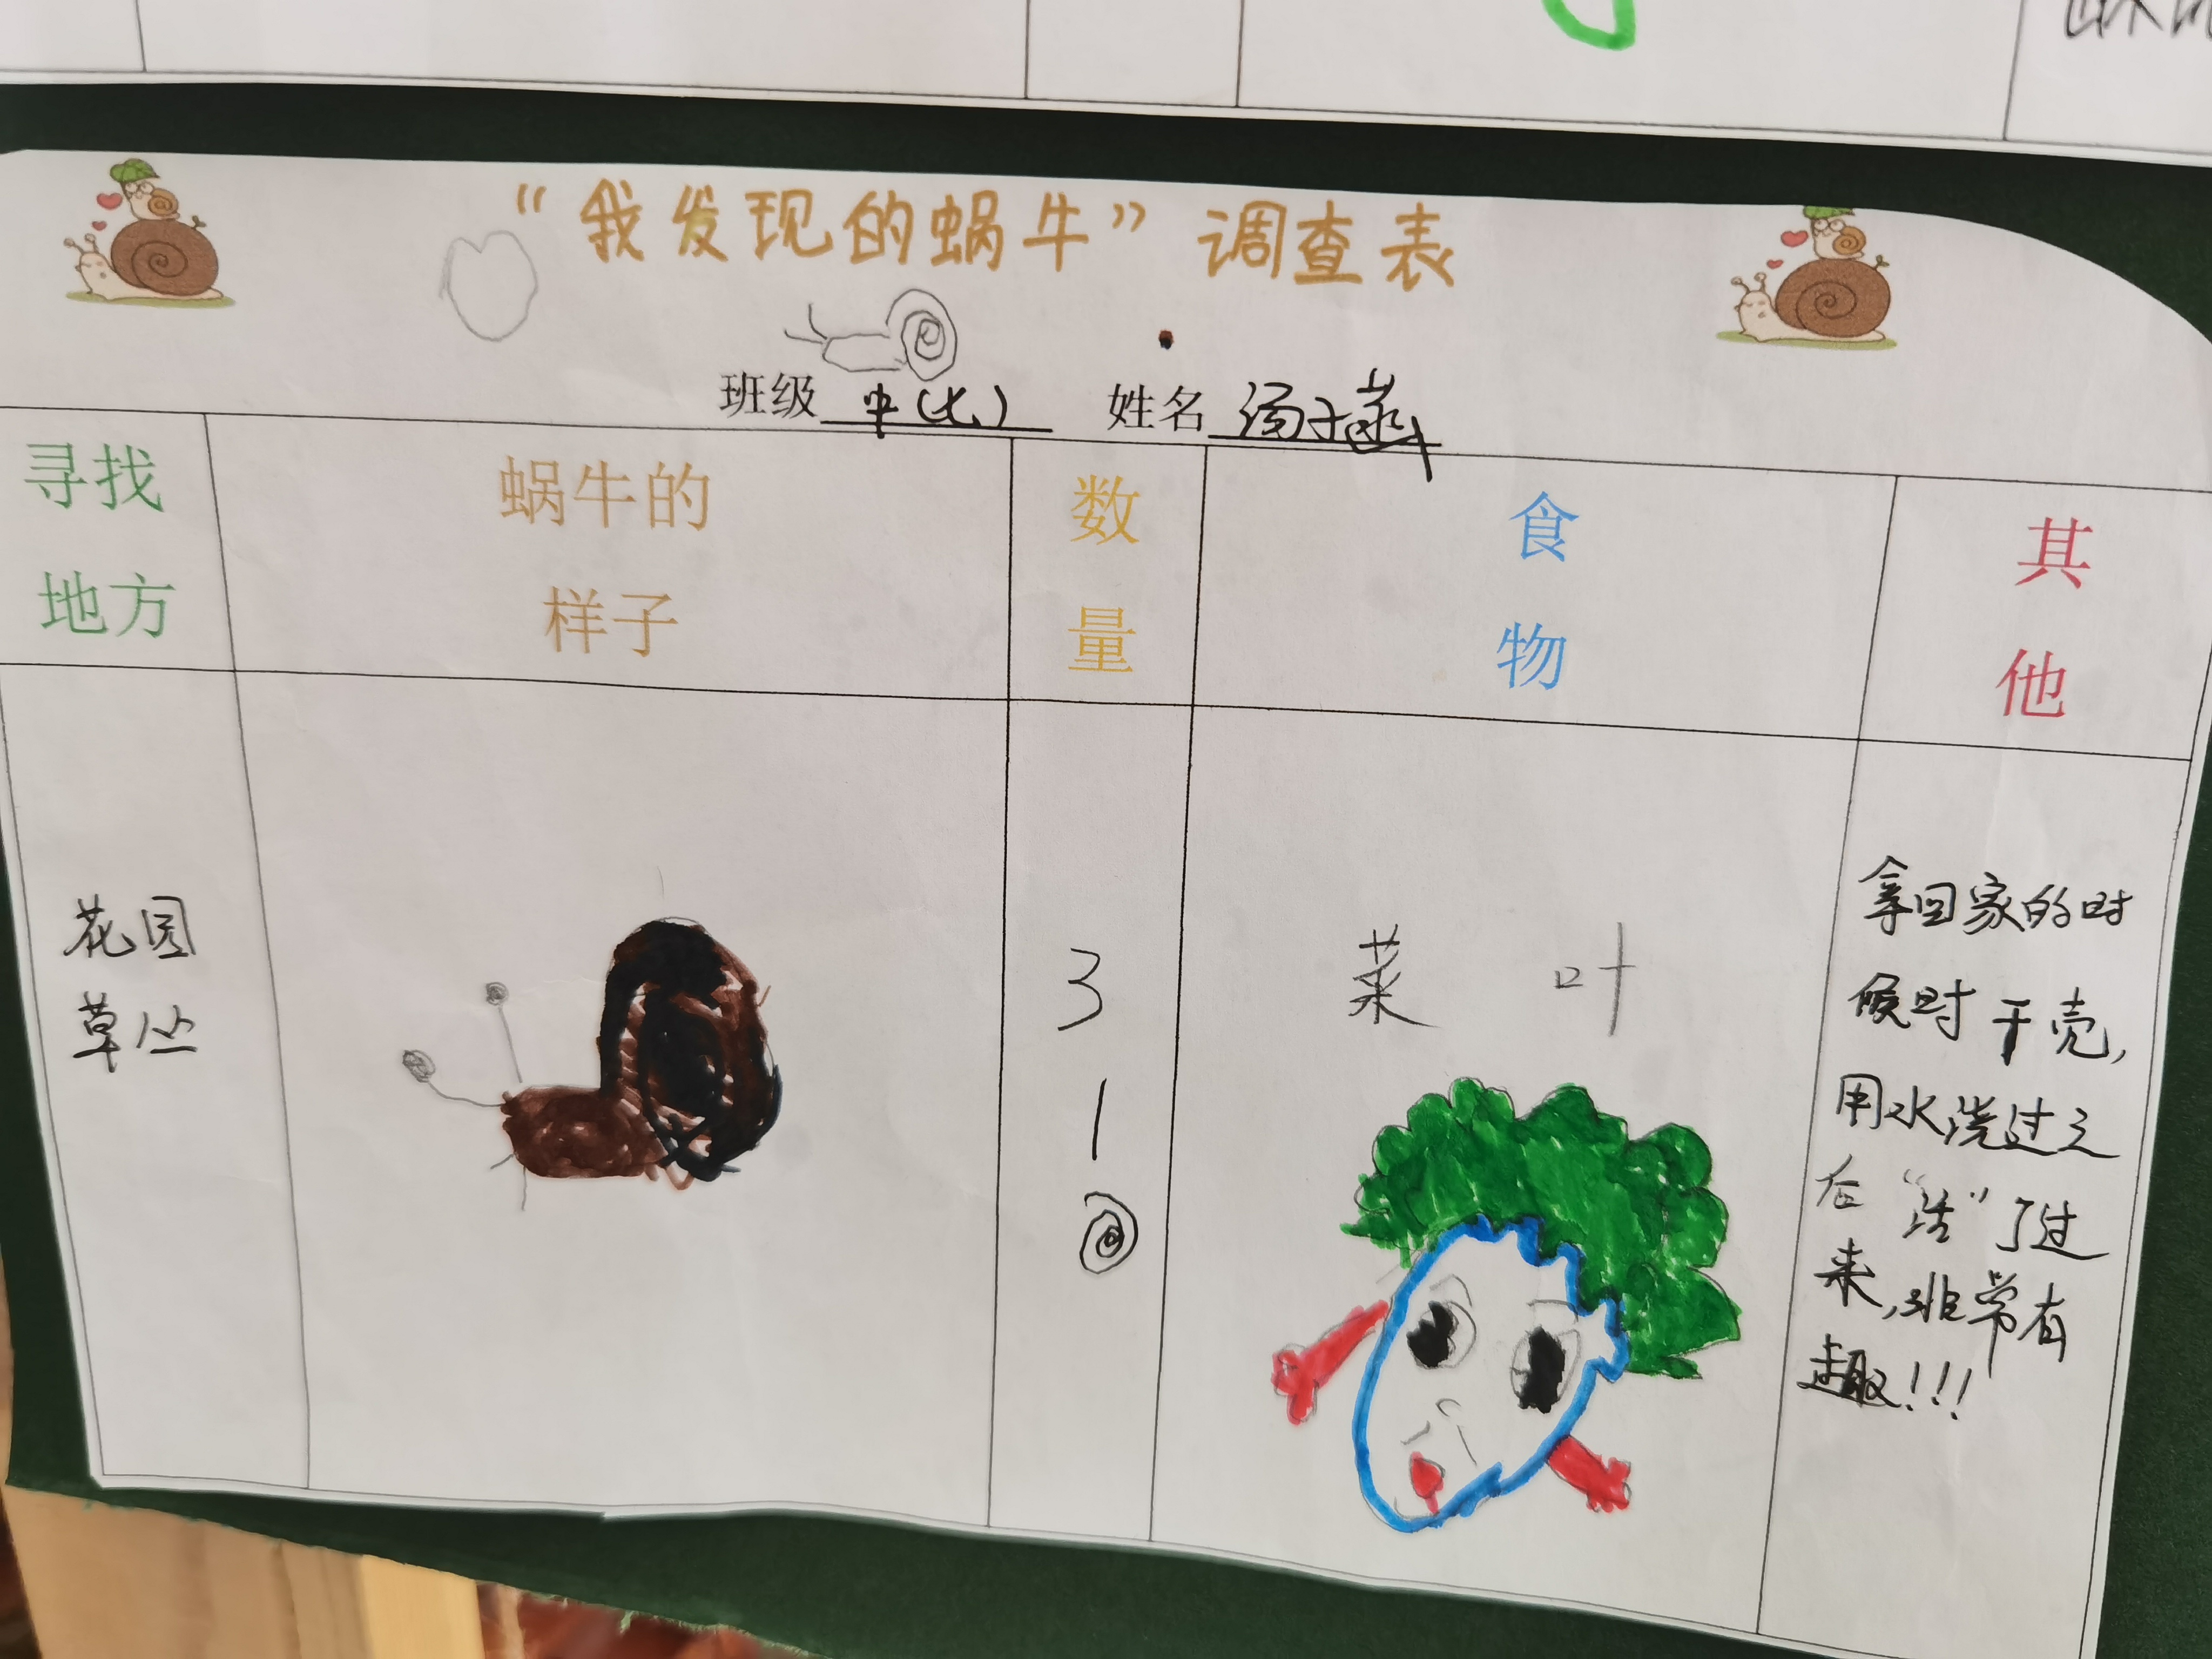 “我发现的蜗牛”调查表
班级 中(七) 姓名 汤子菡
寻找
地方
蜗牛的
样子
数
量
食
物
其
他
花园
草丛
3
1
菜 叶
拿回家的时
候时干壳,
用水浇过之
后“活”了过
来,非常有
趣!!!